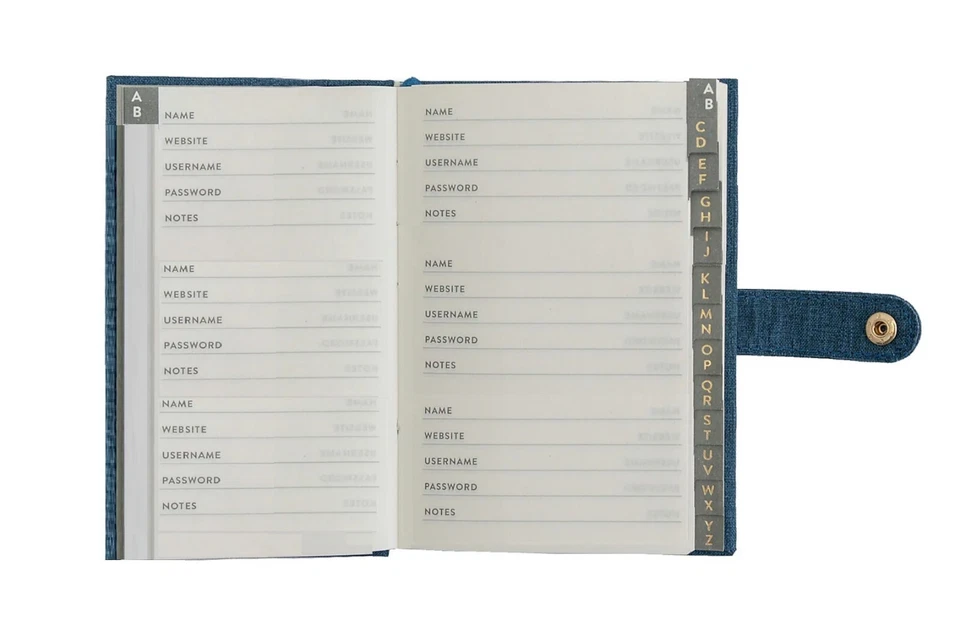 A
B
NAME
WEBSITE
USERNAME
PASSWORD
NOTES
NAME
WEBSITE
USERNAME
PASSWORD
NOTES
NAME
WEBSITE
USERNAME
PASSWORD
NOTES
NAME
WEBSITE
USERNAME
PASSWORD
NOTES
NAME
WEBSITE
USERNAME
PASSWORD
NOTES
NAME
WEBSITE
USERNAME
PASSWORD
NOTES
A
B
C
D
E
F
G
H
I
J
K
L
M
N
O
P
Q
R
S
T
U
V
W
X
Y
Z